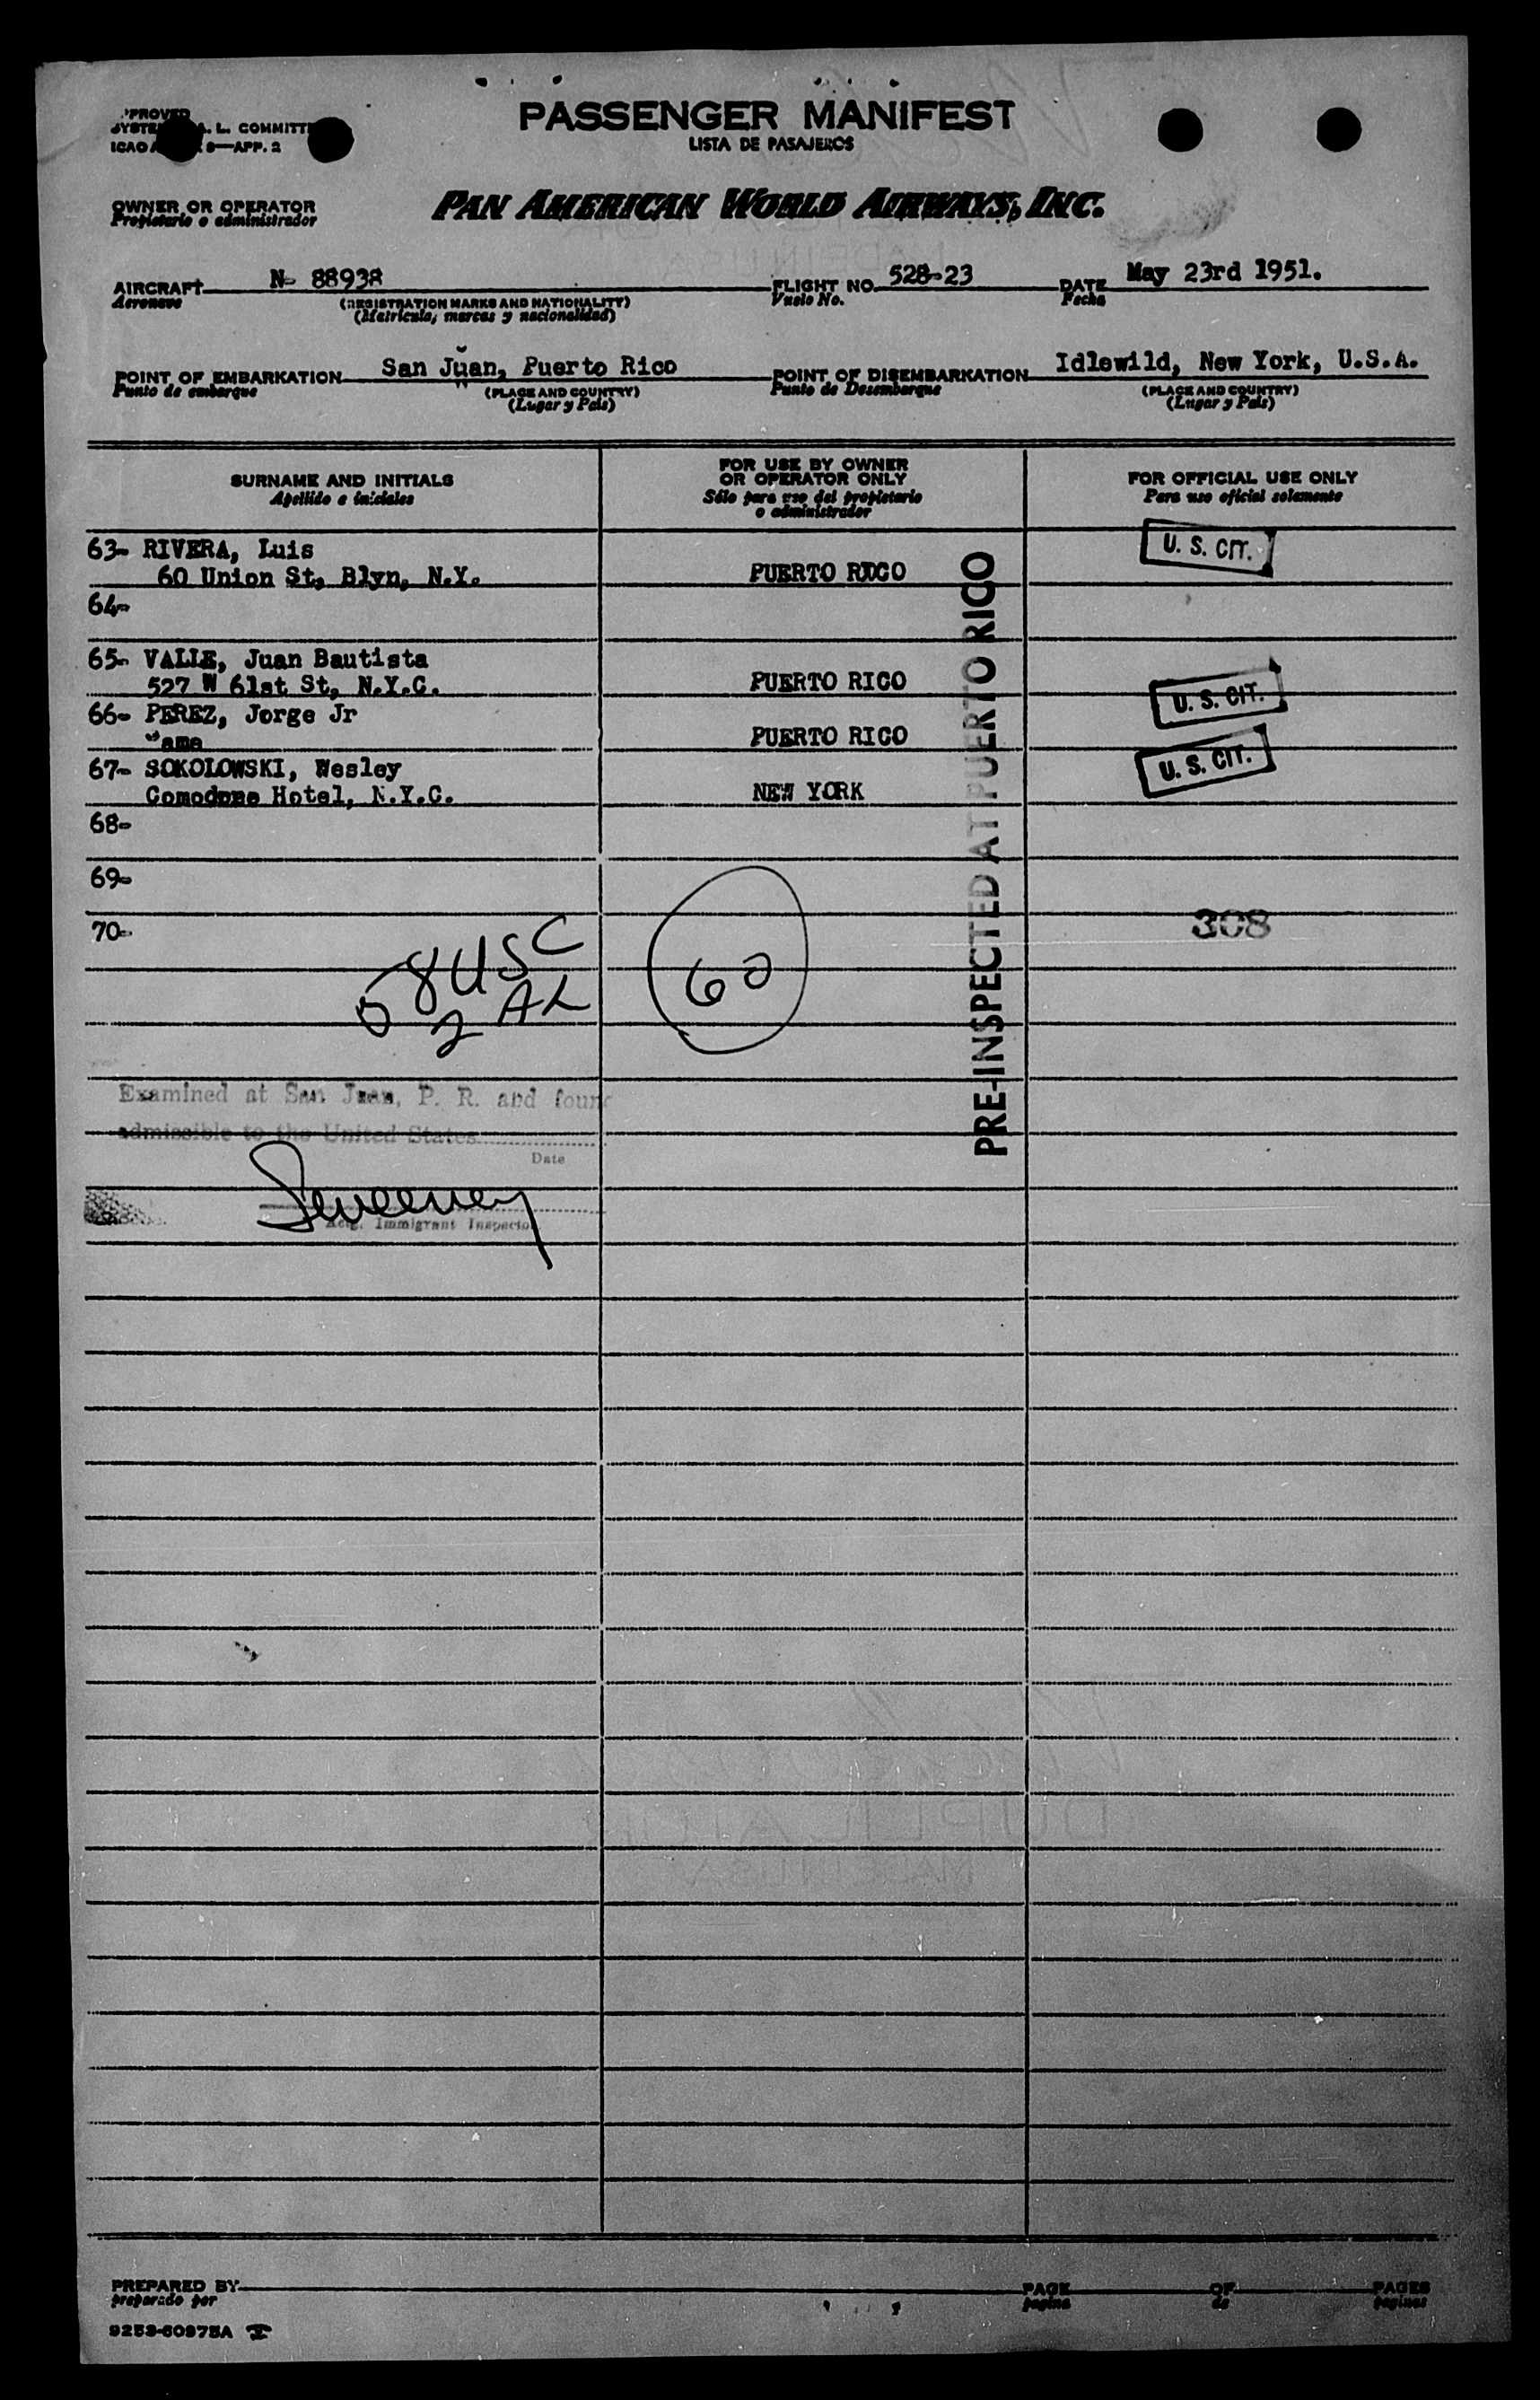 PASSENGER MANIFEST
LISTA DE PASAJEROS
L. COMMITT
—APP. 2
OWNER OR OPERATOR
Propietario o administrador
PAN AMERICAN WORLD AIRWAYS, INC.
AIRCRAFT N- 88938 FLIGHT NO. 528-23 DATE May 23rd 1951.
Aeronave (REGISTRATION MARKS AND NATIONALITY) Vuelo No. Fecha
(Matricula, marcas y nacionalidad)
POINT OF EMBARKATION San Juan, Puerto Rico POINT OF DISEMBARKATION Idlewild, New York, U.S.A.
Punto de embarque (PLACE AND COUNTRY) Punto de Desembarque (PLACE AND COUNTRY)
(Lugar y País) (Lugar y País)
SURNAME AND INITIALS
Apellido e iniciales
FOR USE BY OWNER
OR OPERATOR ONLY
Sólo para uso del propietario
o administrador
FOR OFFICIAL USE ONLY
Para uso oficial solamente
63- RIVERA, Luis U. S. CIT.
60 Union St, Blyn, N.Y. PUERTO RICO
64-
65- VALLE, Juan Bautista
527 W 61st St, N.Y.C. PUERTO RICO U. S. CIT.
66- PEREZ, Jorge Jr
Same PUERTO RICO
67- SOKOLOWSKI, Wesley U. S. CIT.
Comodore Hotel, N.Y.C. NEW YORK
68-
69-
70- 308
58 USC
2 AL
60
PRE-INSPECTED AT PUERTO RICO
Examined at San Juan, P. R. and found
admissible to the United States
Date
Sweeney
Actg. Immigrant Inspector
PREPARED BY PAGE OF PAGES
preparado por pagina de paginas
9253-60975A